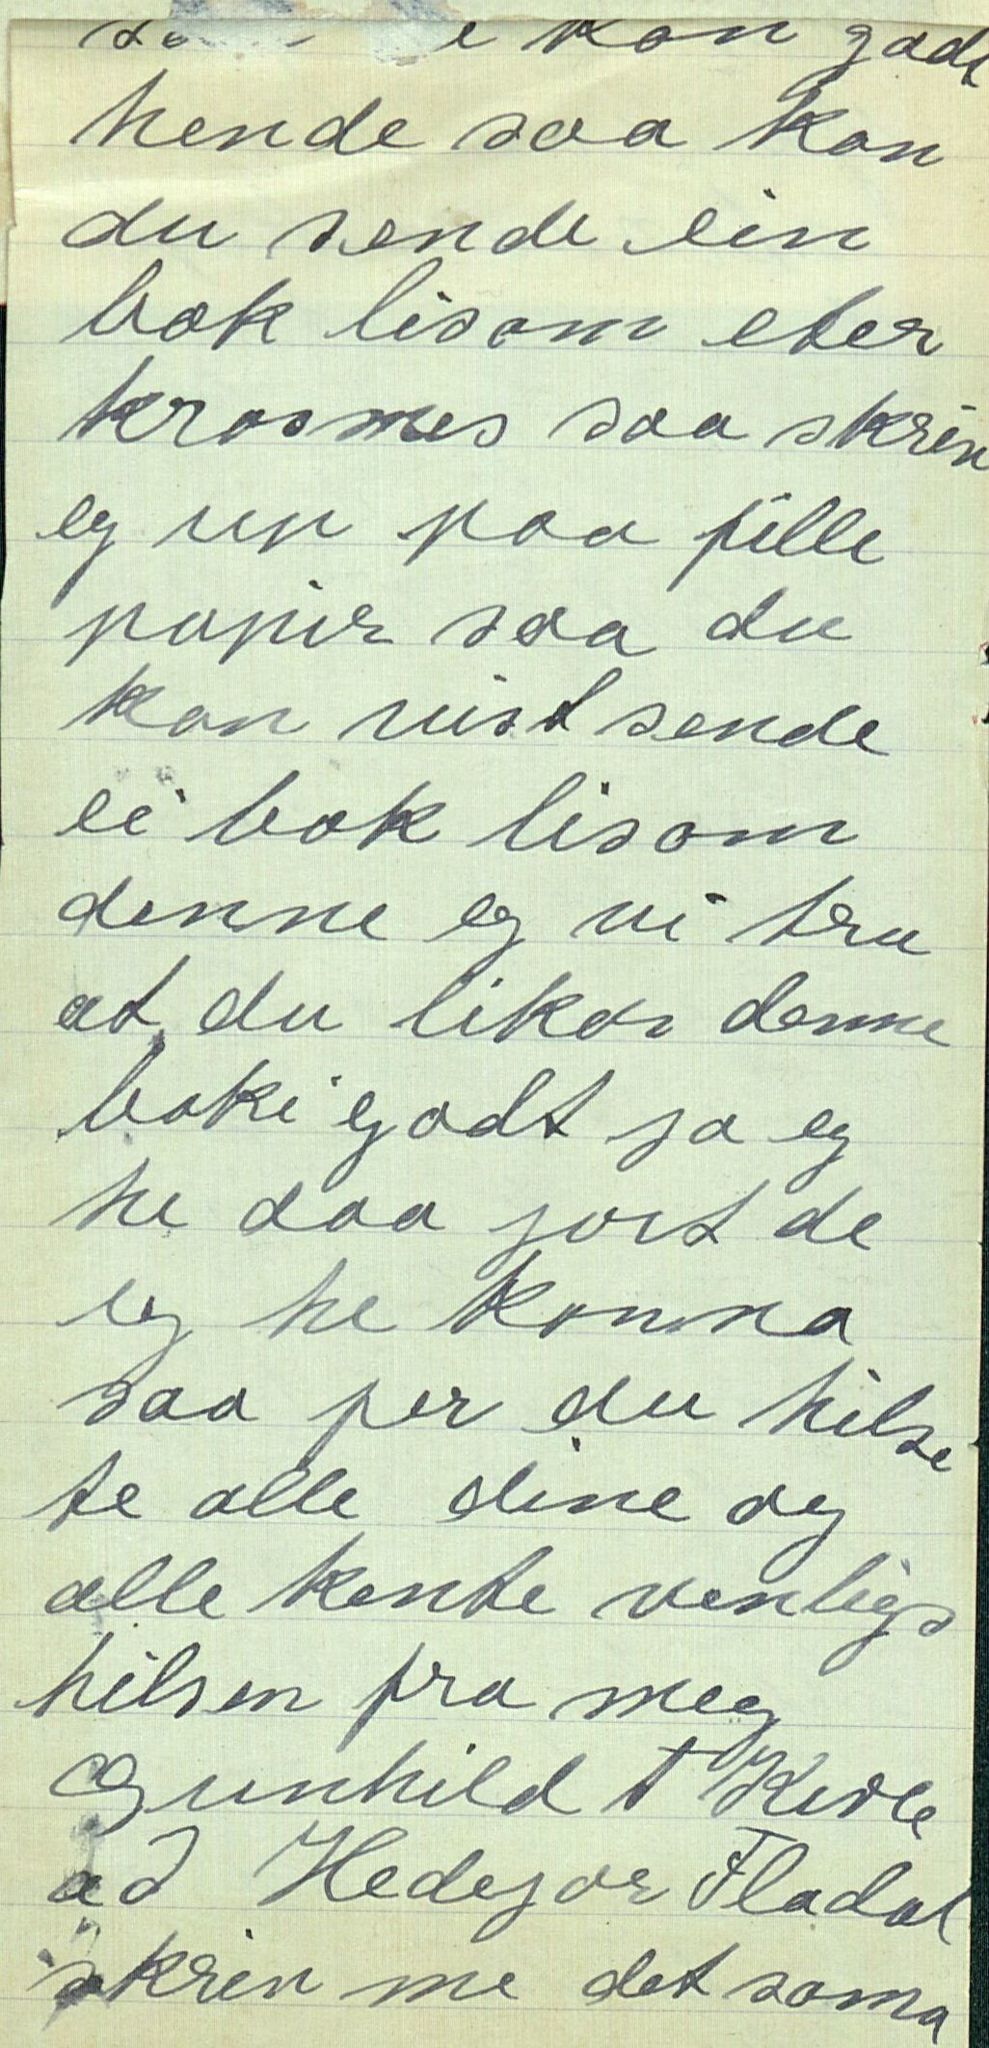 kan godt
hende saa kan
du sende ein
bok lisom eter
krosmes saa skriv
eg up paa fille
papir saa du
kan vist sende
ei bok lisom
denne eg vi tru
at du likar denne
boki godt ja eg
he daa jort de
eg he konna
saa fer du hilse
te alle dine og
alle kente venligs
hilsen fra meg
Gunhild T Kivle
ad Hedejor Fladal
skriv me det soma